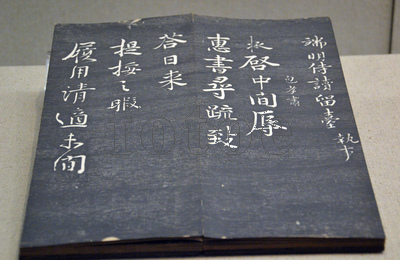 端明侍讀留臺執事
包孝肅
拯啓中間辱
惠書尋疏致
答日來
提之暇
履用清適未間